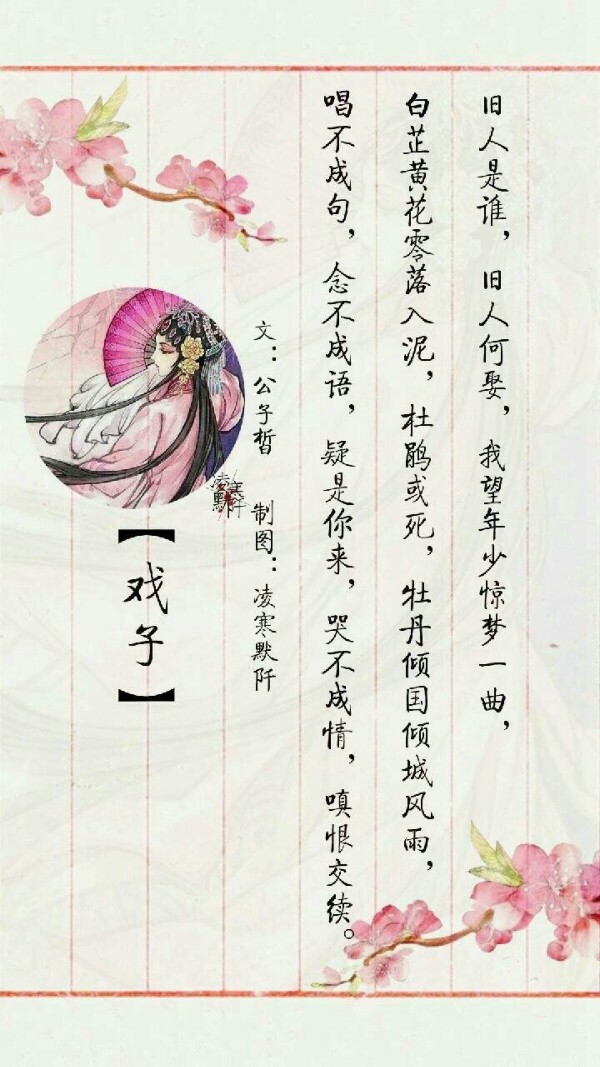 旧人是谁，旧人何娶，我望年少惊梦一曲，
白芷黄花零落入泥，杜鹃或死，牡丹倾国倾城风雨，
唱不成句，念不成语，疑是你来，哭不成情，嗔恨交续。
文：公子皙 制图：凌寒默阡
【戏子】